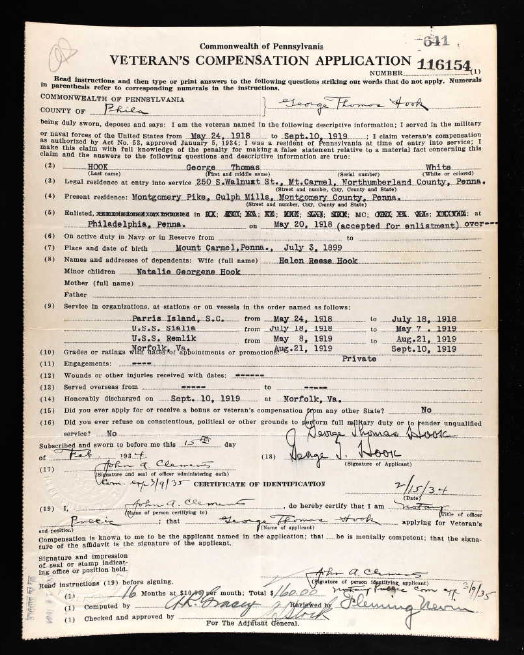 641
Commonwealth of Pennsylvania
VETERAN'S COMPENSATION APPLICATION 116154
NUMBER (1)
Read instructions and then type or print answers to the following questions striking out words that do not apply. Numerals
in parenthesis refer to corresponding numerals in the instructions.
COMMONWEALTH OF PENNSYLVANIA
COUNTY OF Phila } George Thomas Hook
being duly sworn, deposes and says: I am the veteran named in the following descriptive information; I served in the military
or naval forces of the United States from May 24, 1918 to Sept.10, 1919 ; I claim veteran's compensation
as authorized by Act No. 53, approved January 5, 1934; I was a resident of Pennsylvania at time of entry into service; I
make this claim with full knowledge of the penalty for making false statement relative to a material fact concerning this
claim and the answers to the following questions and descriptive information are true:
(2) HOOK George Thomas White
(Last name) (First and middle name) (Serial number) (White or colored)
(3) Legal residence at entry into service 250 S.Walnut St., Mt.Carmel, Northumberland County, Penna.
(Street and number, City, County and State)
(4) Present residence: Montgomery Pike, Gulph Mills, Montgomery County, Penna.
(Street and number, City, County and State)
(5) Enlisted, in MC; at
Philadelphia, Penna. on May 20, 1918 (accepted for enlistment) over---
(6) On active duty in Navy or in Reserve from to
(7) Place and date of birth Mount Carmel,Penna., July 3, 1899
(8) Names and addresses of dependents: Wife (full name) Helen Reese Hook
Minor children Natalie Georgene Hook
Mother (full name)
Father
(9) Service in organizations, at stations or on vessels in the order named as follows:
Parris Island, S.C. from May 24, 1918 to July 18, 1918
U.S.S. Sialia from July 18, 1918 to May 7 . 1919
U.S.S. Remlik from May 8, 1919 to Aug.21, 1919
Norfolk, Va. Aug.21, 1919 Sept.10, 1919
(10) Grades or ratings with dates of appointments or promotions: Private
(11) Engagements: ----
(12) Wounds or other injuries received with dates: ------
(13) Served overseas from ----- to -----
(14) Honorably discharged on Sept. 10, 1919 at Norfolk, Va.
(15) Did you ever apply for or receive a bonus or veteran's compensation from any other State? No
(16) Did you ever refuse on conscientious, political or other grounds to perform full military duty or to render unqualified
service? No
Subscribed and sworn to before me this 15th day
of Feb. 1934. George Thomas Hook
(17) John A. Clemens (18) George T. Hook
(Signature and seal of officer administering oath) (Signature of Applicant)
Com. exp. 3/9/35
CERTIFICATE OF IDENTIFICATION 2/15/34
(Date)
(19) I, John A. Clemens , do hereby certify that I am Notary
(Name of person certifying to) (Title of officer
Public ; that George Thomas Hook applying for Veteran's
and position) (Name of applicant)
Compensation is known to me to be the applicant named in the application; that he is mentally competent; that the signa-
ture of the affidavit is the signature of the applicant.
Signature and impression
of seal or stamp indicat-
ing office or position held.
John A Clemens
(Signature of person identifying applicant)
Notary Public Com exp. 3/9/35
Read instructions (19) before signing.
(1) 16 Months at $10.00 per month: Total $160.00
(1) Computed by Reviewed by Fleming Nevin
(1) Checked and approved by
For The Adjutant General.